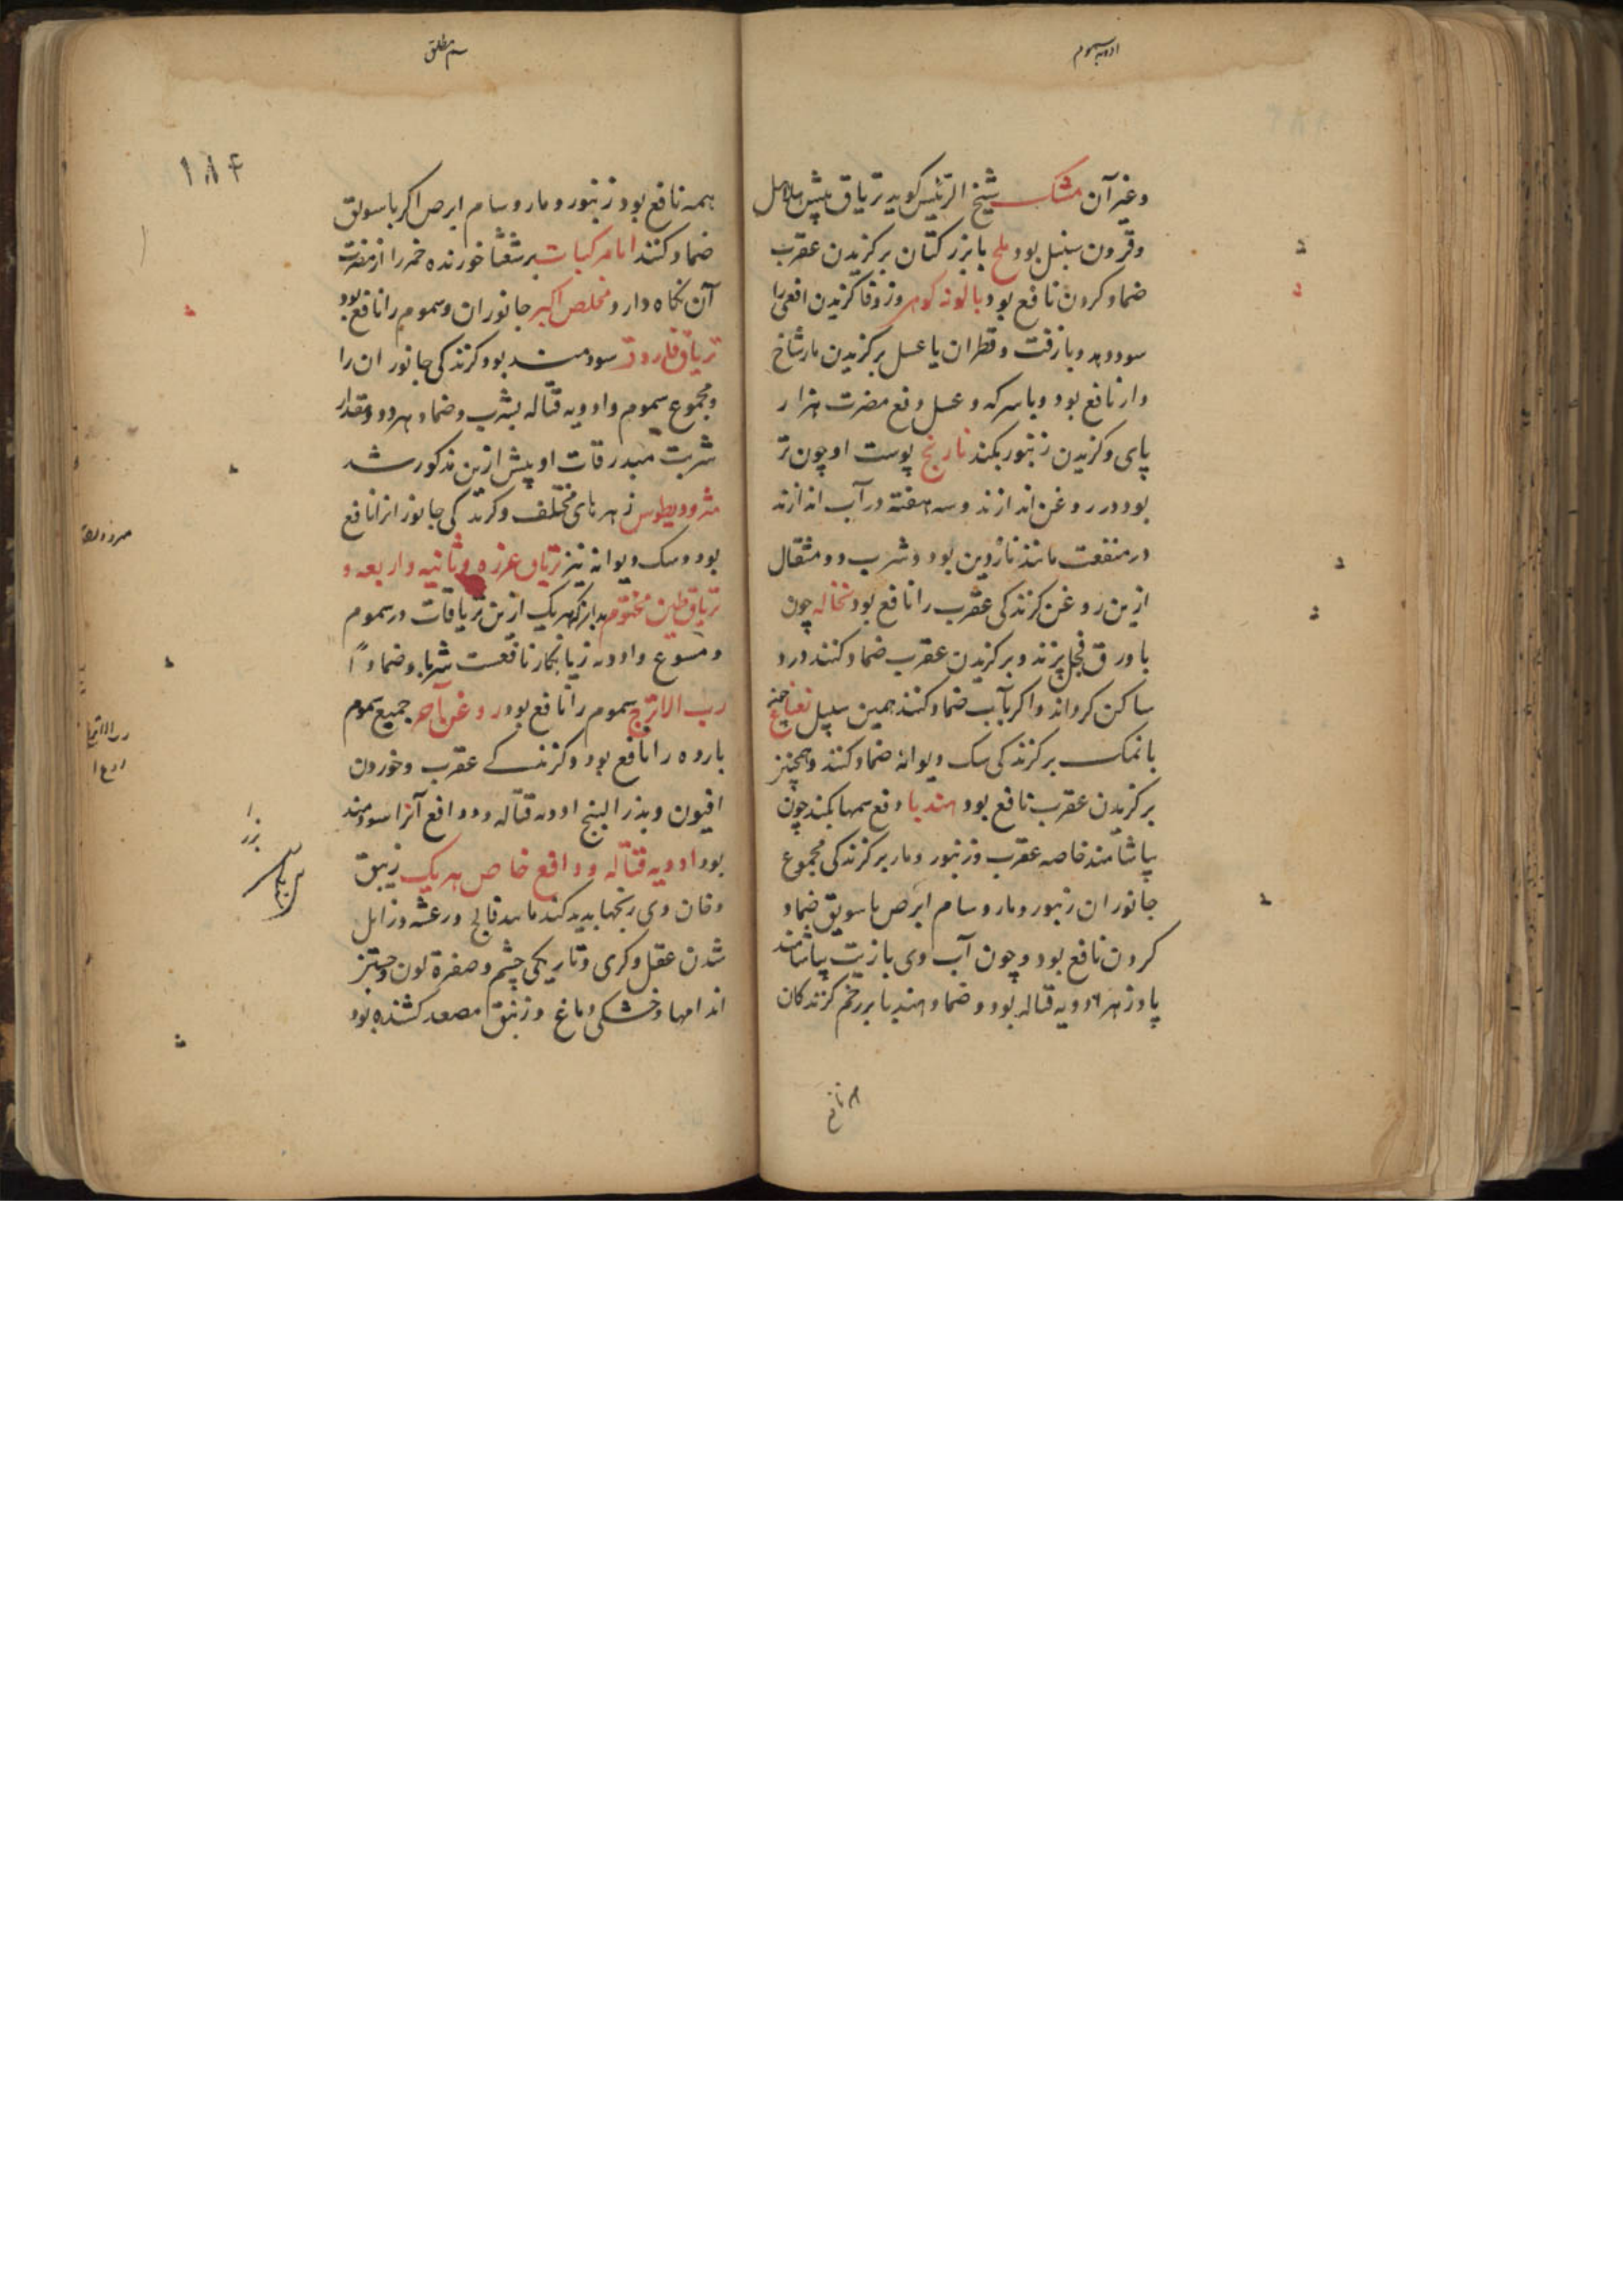 ادویه سموم
وغیر آن مشک شیخ الرئیس کوید تریاق بیش هلاهل
وقرون سنبل بود ملح بابزر کتان بر کزیدن عقرب
ضماد کردن نافع بود با کزیدن افعی را
سود دهد وبا زفت وقطران یا عسل بر کزیدن مار شاخ
دار نافع بود وباسرکه وعسل دفع مضرت هزار
پای وکزیدن زنبور بکند نارنج پوست او چون تر
بود در روغن اندازند وسه هفته در آب اندازند
در منفعت مانند ناردین بود وشرب دو مثقال
ازین روغن کزندکی عقرب را نافع بود نخاله چون
با ورق فجل پزند وبر کزیدن عقرب ضماد کنند درد
ساکن کرداند واکر بآب ضماد کنند همین سبیل نعناع
بانمک بر کزندکی سک دیوانه ضماد کنند وهمچنین
بر کزیدن عقرب نافع بود هندبا دفع سمها بکند چون
بیاشامند خاصه عقرب وزنبور ومار بر کزندکی مجموع
جانوران زنبور ومار وسام ابرص باسویق ضماد
کردن نافع بود وچون آب وی بازیت بیاشامند
پادزهر ادویه قتاله بود وضماد هندبا بر زخم کزندکان
سم مطلق
۱۸۴
همه نافع بود زنبور ومار وسام ابرص اکر باسویق
ضماد کنند اما مرکبات برشعثا خورنده خمر را از مضرت
آن نکاه دارد مخلص اکبر جانوران وسموم را نافع بود
تریاق فاروق سودمند بود کزندکی جانوران را
ومجموع سموم وادویه قتاله بشرب وضماد هر دو ومقدار
شربت مبدرقات او پیش ازین مذکور شد
مثرودیطوس زهرهای مختلف وکزندکی جانوران را نافع
بود وسک دیوانه نیز تریاق عزره وثمانیه واربعه و
تریاق طین مختوم بدانکه هریک ازین تریاقات در سموم
وملسوع وادویه زیانکار نافعست شربا وضمادا
رب الاترج سموم را نافع بود روغن آجر جمیع سموم
بارده را نافع بود وکزندکی عقرب وخوردن
افیون وبذر البنج ادویه قتاله ودوافع آنرا سودمند
بود ادویه قتاله ودوافع خاص هر یک زیبق
دخان وی رنجها پدید کند مانند فالج ورعشه وزایل
شدن عقل وکری وتاریکی چشم وصفرة لون
اندامها وخشکی دماغ وزیبق مصعد کشنده بود